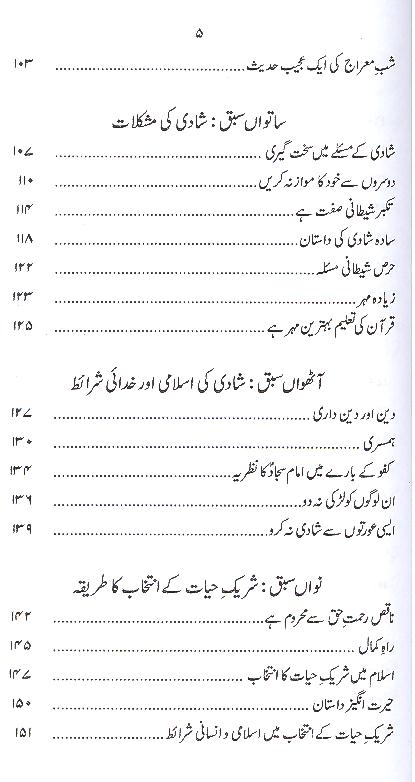 ۵
شبِ معراج کی ایک عجیب حدیث ........................................ ۱۰۳
ساتواں سبق : شادی کی مشکلات
شادی کے مسئلے میں سخت گیری ........................................ ۱۰۷
دوسروں سے خود کا موازنہ کریں ........................................ ۱۱۰
تکبر شیطانی صفت ہے ........................................ ۱۱۴
سادہ شادی کی داستان ........................................ ۱۱۸
حرص شیطانی مسئلہ ........................................ ۱۲۲
زیادہ مہر ........................................ ۱۲۳
قرآن کی تعلیم بہترین مہر ہے ........................................ ۱۲۵
آٹھواں سبق : شادی کی اسلامی اور خدائی شرائط
دین اور دین داری ........................................ ۱۲۷
ہمسری ........................................ ۱۳۰
کفو کے بارے میں امام سجادؑ کا نظریہ ........................................ ۱۳۴
ان لوگوں کو لڑکی نہ دو ........................................ ۱۳۶
ایسی عورتوں سے شادی نہ کرو ........................................ ۱۳۹
نواں سبق : شریکِ حیات کے انتخاب کا طریقہ
ناقص رحمتِ حق سے محروم ہے ........................................ ۱۴۲
راہِ کمال ........................................ ۱۴۵
اسلام میں شریکِ حیات کا انتخاب ........................................ ۱۴۷
حیرت انگیز داستان ........................................ ۱۵۰
شریکِ حیات کے انتخاب میں اسلامی و انسانی شرائط ........................................ ۱۵۱